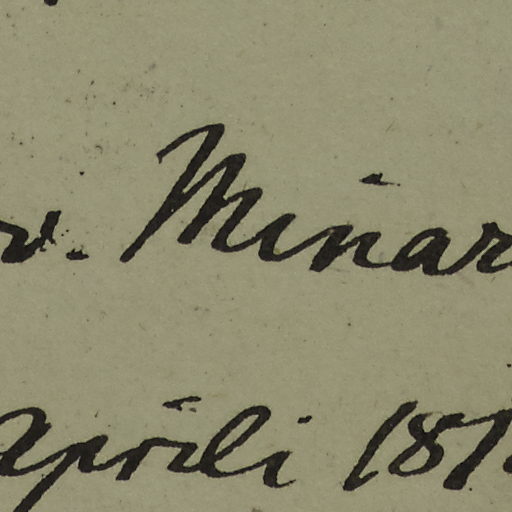 v. Minar
Aprili 181